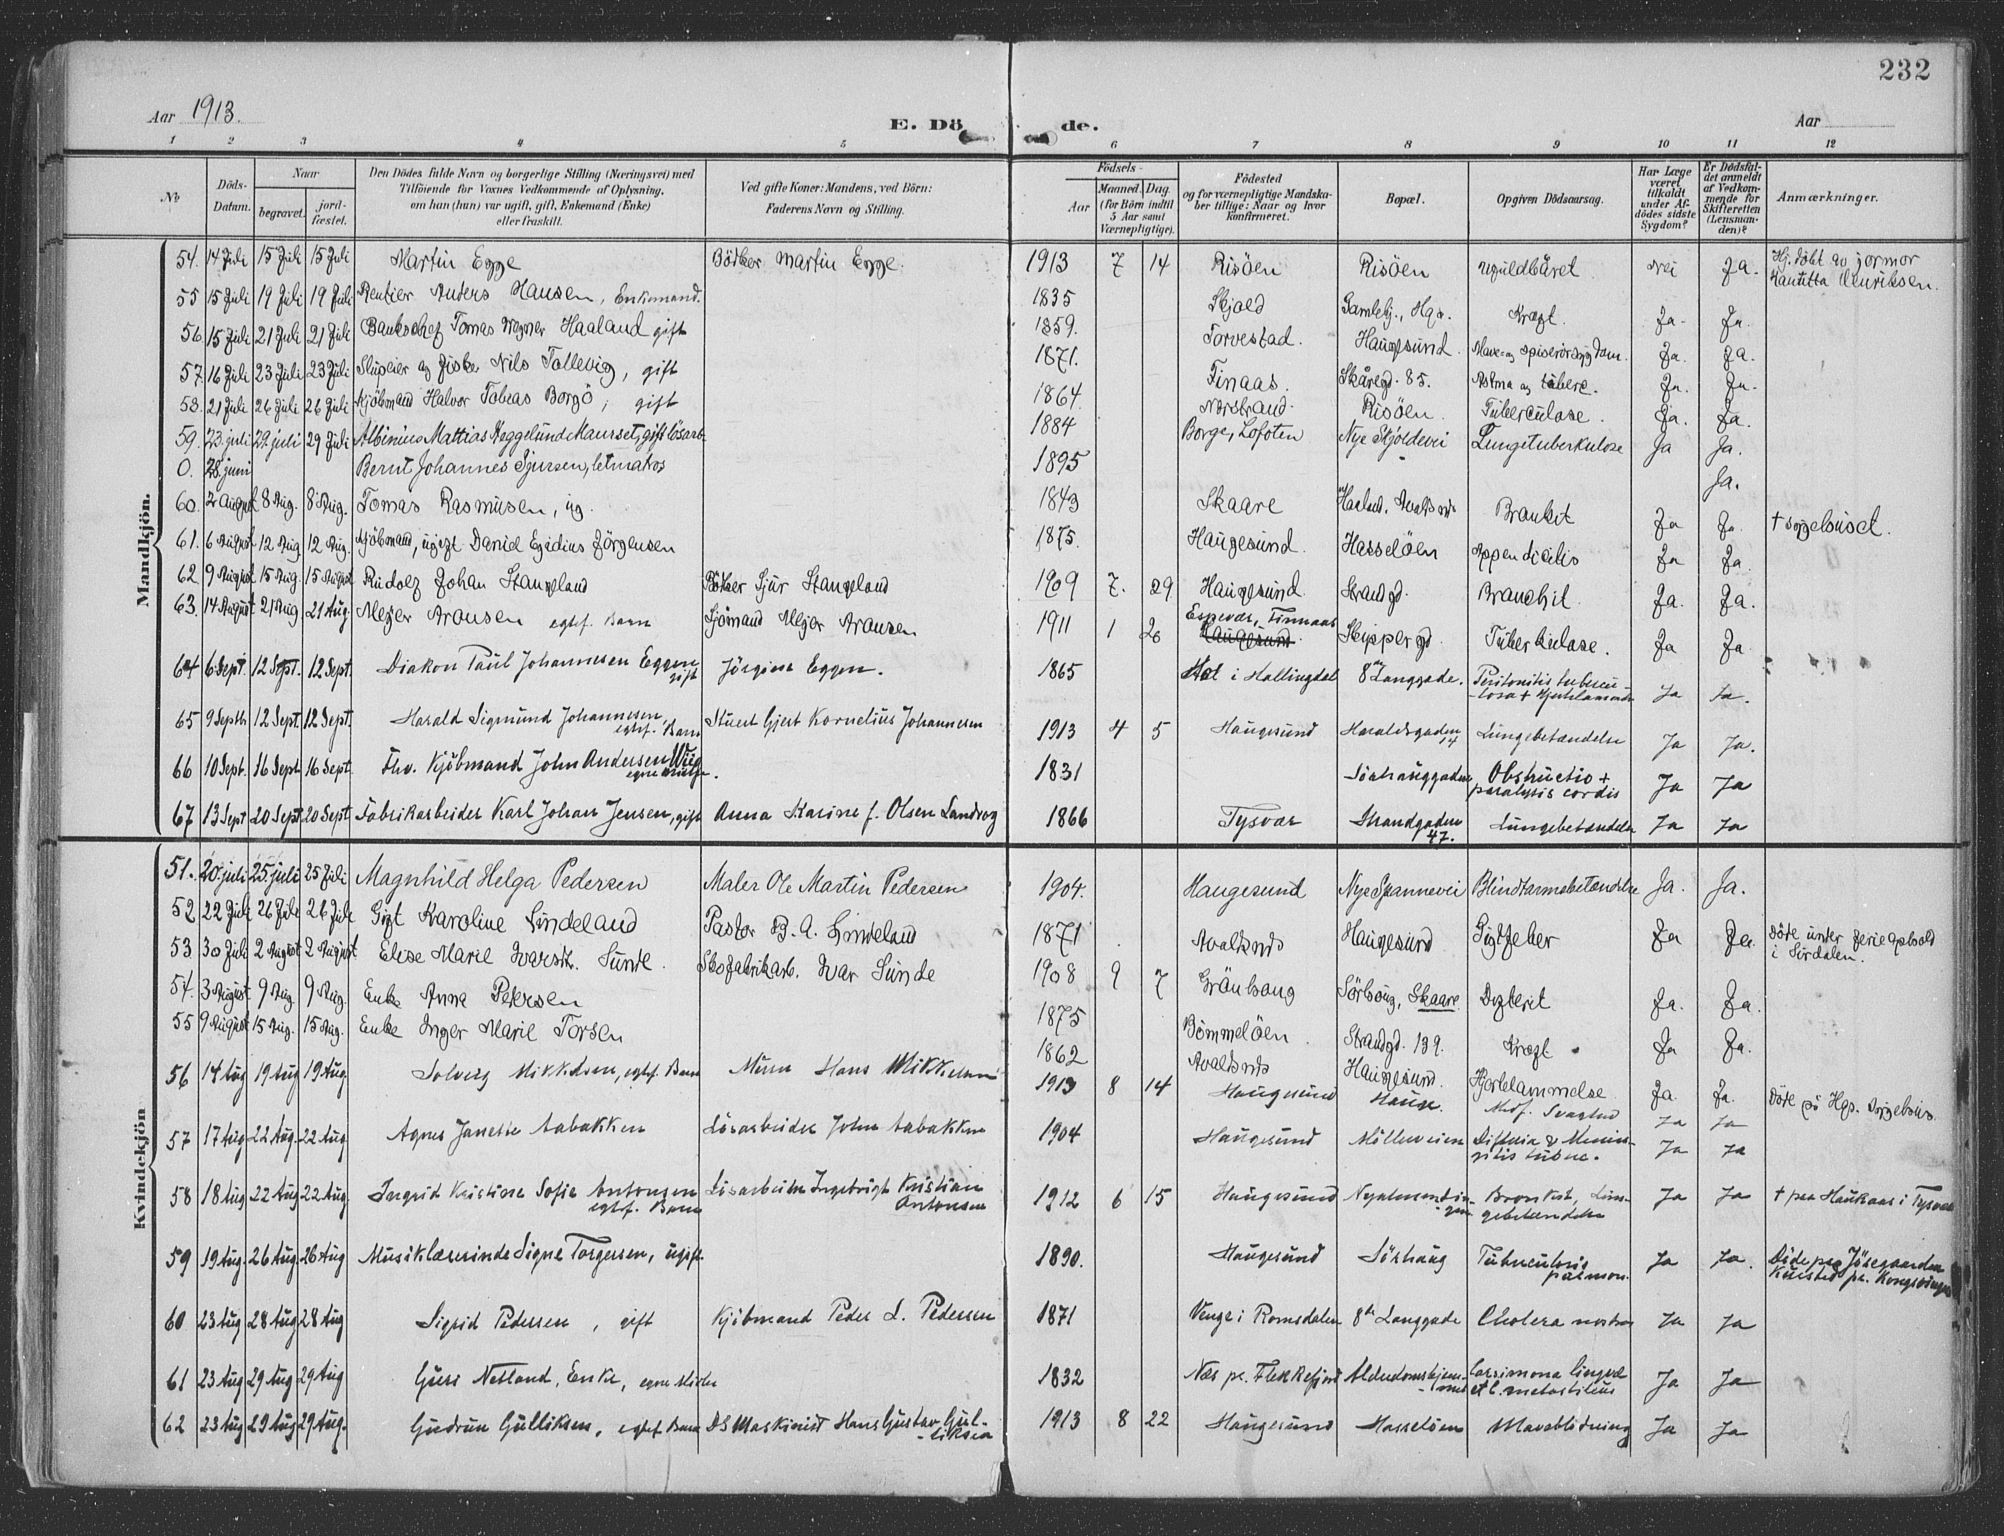 232
Aar 1913.
E. Dö de.
Aar
1 2 3 4 5 6 7 8 9 10 11 12
No
Döds-Datum.
Naar
begravet.
jord-fæstet.
Den Dödes fulde Navn og borgerlige Stilling (Næringsvei) med
Tilföiende for Voxnes Vedkommende af Oplysning,
om han (hun) var ugift, gift, Enkemand (Enke)
eller fraskilt.
Ved gifte Koner: Mandens, ved Börn:
Faderens Navn og Stilling.
Födsels-
Aar
Maaned. Dag.
(for Börn indtil
5 Aar samt
Værnepligtige).
Födested
og for værnepligtige Mandska-
ber tillige: Naar og hvor
konfirmeret.
Bopæl.
Opgiven Dödsaarsag.
Har Læge
været
tilkaldt
under Af-
dödes sidste
Sygdom?
Er Dödsfal-
det anmeldt
af Vedkom-
mende for
Skifteretten
(Lensman-
den)?
Anmærkninger.
Mandkjön.
54. 14 Juli 15 Juli 15 Juli Martin Egge Bötker Martin Egge. 1913 7 14 Risöen Risöen Ufuldbåret Nei Ja. Hj. döbt av jormor
Henriksen.
55 15 Juli 19 Juli 19 Juli Rentier Anders Hansen, Enkemand. 1835 Skjold Gamlebj., Hgs. Kræft. Ja. Ja.
56. 15 Juli 21 Juli 21 Juli Bankchef Tomas Wegner Haaland gift 1859. Torvestad. Haugesund. Mave- og spiserörsygdom. Ja. Ja.
57. 16 Juli 23 Juli 23 Juli og Fisker Nils Tollevig, gift 1871. Finaas. Skåregd. 85. Astma og tuberc. Ja. Ja.
58. 21 Juli 26 Juli 26 Juli Kjöbmand Halvor Tobias Borgö, gift 1864. Nerstrand. Risöen. Tuberculose. Ja. Ja.
59. 23. juli 29 juli 29 Juli Albinius Mattias Heggelund Maurset, gift lösarb. 1884 Borge, Lofoten Nye Skjoldevei Lungetuberkulose Ja Ja.
0. 28. juni Bernt Johannes Sjursen, letmatros 1895 Ja.
60. 2 August 8 Aug. 8 Aug. Tomas Rasmusen, ug. 1843 Skaare Haaland, Avaldsnes Bronkit Ja Ja. † Sygehuset.
61. 6 August 12 Aug. 12 Aug. Kjöbmand, ugift Daniel Egidius Jörgensen 1875. Haugesund. Hasselöen Appendicitis Ja Ja.
62 9 August 15 Aug. 15 August Rudolf Johan Stangeland Bötker Sjur Stangeland 1909 7. 29 Haugesund. Strandgd. Bronchit. Ja. Ja.
63. 14 August 21 Aug. 21 Aug. Mejer Aronsen egtef. Barn Sjömand Mejer Aronsen 1911 1 26 Espevær, Finnaas Haugesund. Skippergd. Tuberkulose. Ja Ja
64 6 Sept 12 Sept. 12 Sept. Diakon Paul Johannesen Eggen gift Jörgine Eggen. 1865 Hol i Hallingdal 8de Langgade. Peritonitis tubercu-
losa + Hjertelammelse Ja Ja.
65 9 Septb 12 Sept. 12 Sept. Harald Sigmund Johannesen, egtef. Barn Stuert Gjert Kornelius Johannesen 1913 4 5 Haugesund Haraldsgaden 14 Lungebetændelse Ja Ja.
66 10 Sept. 16 Sept 16 Sept. Fhv. Kjöbmand John Andersen Wiig egne midler. 1831 Sörhauggaden Obstructio +
paralysis cordis Ja Ja
67 13 Sept 20 Sept. 20 Sept Fabrikarbeider Karl Johan Jensen, gift Anna Karine f. Olsen Landvog 1866 Tysvær Strandgaden 47. Lungebetændelse Ja Ja
Kvindekjön
51. 20 juli 25 juli 25 Juli Magnhild Helga Pedersen Maler Ole Martin Pedersen 1904. Haugesund Nye Spannevei Blindtarmsbetændelse Ja. Ja.
52 22 Juli 26 Juli 26 Juli Gift Karoline Lindeland Pastor B. A. Lindeland 1871 Avaldsnes Haugesund Gigtfeber Ja Ja. Döde under ferieophold
i Sirdalen.
53. 30 Juli 2 August 2 August Elise Marie Ivarsdt. Sunde. Skofabrikarb. Ivar Sunde 1908 9 7 Grönhaug Sörhaug, Skaare Difterit Ja. Ja.
54. 3 August 9 Aug. 9 Aug. Enke Anna Petersen 1875 Bömmelöen. Strandgd. 139. Kræft Ja Ja.
55 9 August 15 Aug. 15 Aug. Enke Inger Marie Torsen 1862 Avaldsnes Haugesund. Hjertelammelse Ja. Ja. Döde på Hgs. Sygehus.
56 14 Aug 19 Aug 19 Aug Solveig Mikkelsen, egtef. Barn Murer Hans Mikkelsen 1913 8 14 Haugesund Hauge. Medf. Svaghed Ja Ja
57 17 Aug 22 Aug. 22 Aug. Agnes Janette Aabakken Lösarbeider John Aabakken 1904 Haugesund Mölleveien Difteria & Menin-
gitis tuberc. Ja Ja
58 18 Aug 22 Aug 22 Aug. Ingrid Kristine Sofie Antonsen egtef. Barn Lösarbeider Ingebrigt Kristian
Antonsen 1912 6 15 Haugesund Bronkit, Lun-
gebetændelse Ja Ja † paa Haukaas i Tysvær
59 19 Aug. 26 Aug. 26 Aug Musiklærerinde Signe Torgersen, ugift 1890. Haugesund Sörhaug Tuberculosis
pulmon. Ja Ja. Döde paa Jösegaarden
Kursted pr. Kongsvinger
60 23 Aug 28 Aug 28 Aug Sigrid Pedersen, gift Kjöbmand Peder L. Pedersen 1871 Venge i Romsdalen 8de Langgade Cholera nostras Ja Ja
61 23 Aug 29 Aug 29 Aug Guri Netland, Enke, egne Midler 1832 Næs pr. Flekkefjord Alderdomshjem-
met Ja Ja
62 23 Aug 29 Aug 29 Aug. Gudrun Gulliksen, egtef Barn DS Maskinist Hans Gustav Gul-
liksen 1913 8 22 Haugesund Hasselöen Maveblödning Ja Ja